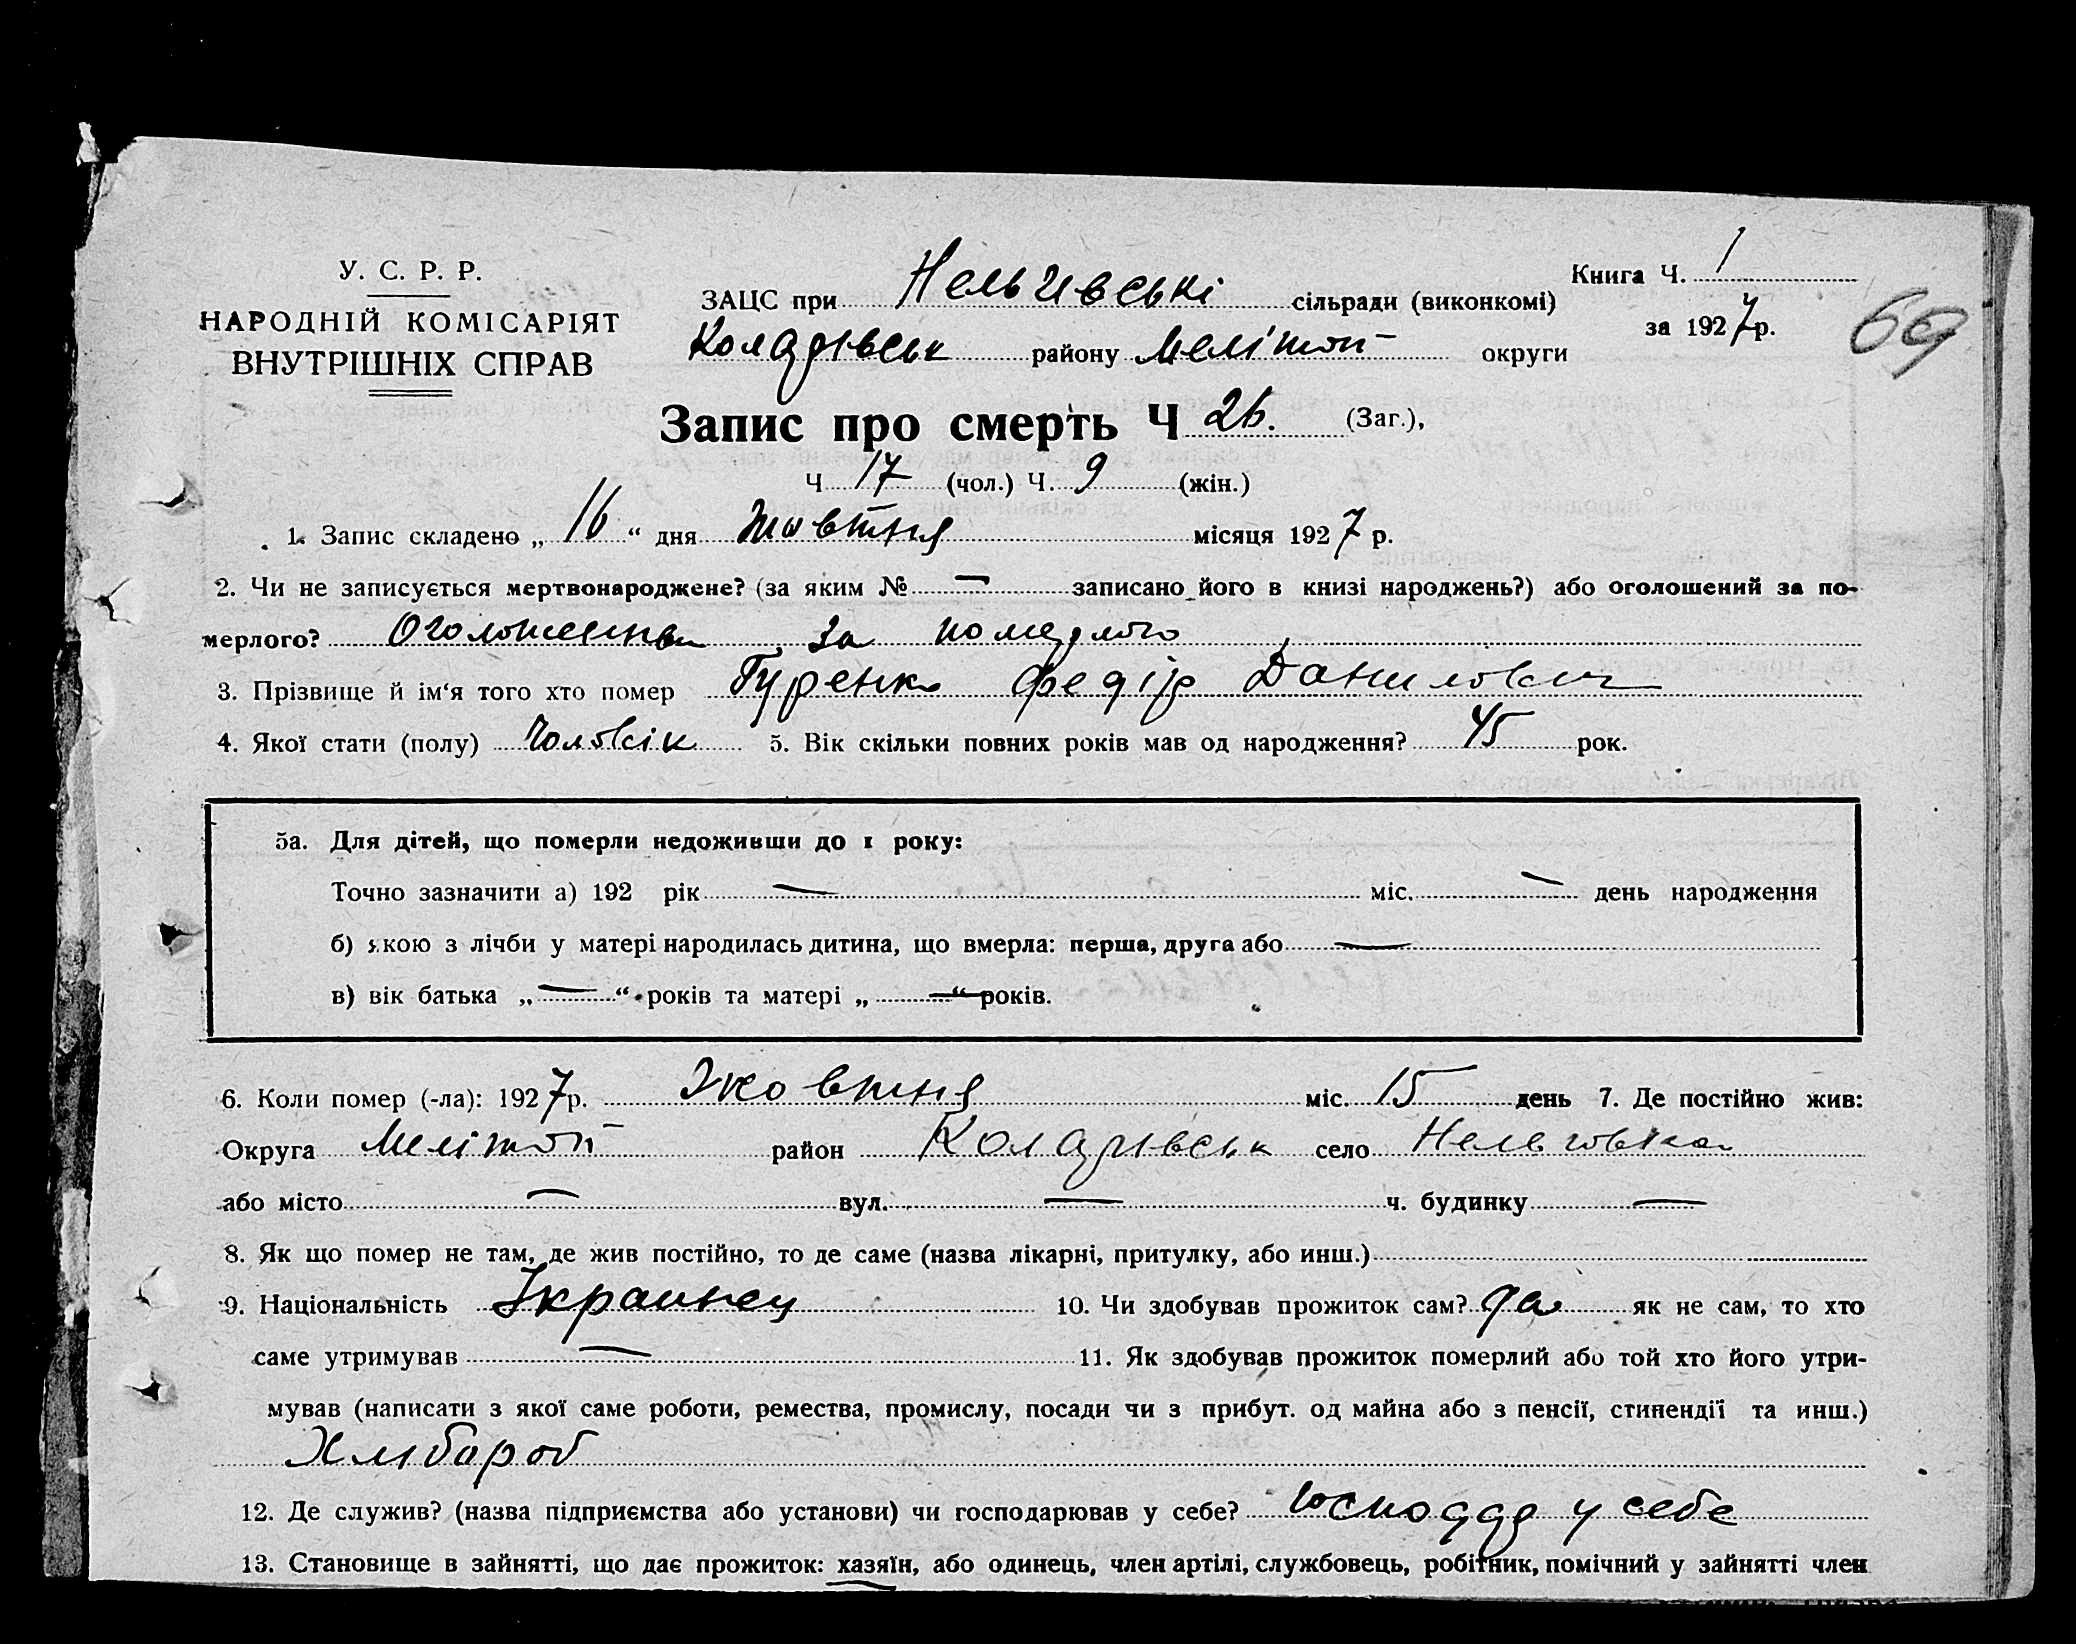 У. С. Р. Р.
НАРОДНІЙ КОМІСАРІЯТ
ВНУТРІШНІХ СПРАВ
Книга Ч. 1
за 1927 р.
69
ЗАЦС при Нельгівські сільради (виконкомі)
Коларівськ району Меліноп округи
Запис про смерть Ч 26. (Заг.),
Ч 17 (чол.) Ч. 9 (жін.)
1. Запис складено „ 16 “ дня жовтня місяця 1927 р.
2. Чи не записується мертвонароджене? (за яким № — записано його в книзі народжень?) або оголошений за по-
мерлого? за померлого
3. Прізвище й ім‘я того хто помер Гуренко Федір Данилович
4. Якої стати (полу) Чоловік 5. Вік скільки повних років мав од народження? 45 рок.
5а. Для дітей, що померли недоживши до 1 року:
Точно зазначити а) 192 рік — міс. — день народження
б) якою з лічби у матері народилась дитина, що вмерла: перша, друга або —
в) вік батька „ — “ років та матері „ — “ років.
6. Коли помер (-ла): 1927 р. Жовтня міс. 15 день 7. Де постійно жив:
Округа Мелітоп район Коларівськ село Нельговка
або місто — вул. — ч. будинку —
8. Як що помер не там, де жив постійно, то де саме (назва лікарні, притулку, або инш.)
9. Національність Украинец 10. Чи здобував прожиток сам? да як не сам, то хто
саме утримував — 11. Як здобував прожиток померлий або той хто його утри-
мував (написати з якої саме роботи, ремества, промислу, посади чи з прибут. од майна або з пенсії, стипендії та инш.)
Хлібороб
12. Де служив? (назва підприємства або установи) чи господарював у себе? у себе
13. Становище в зайнятті, що дає прожиток: хазяїн, або одинець, член артілі, службовець, робітник, помічний у зайнятті член